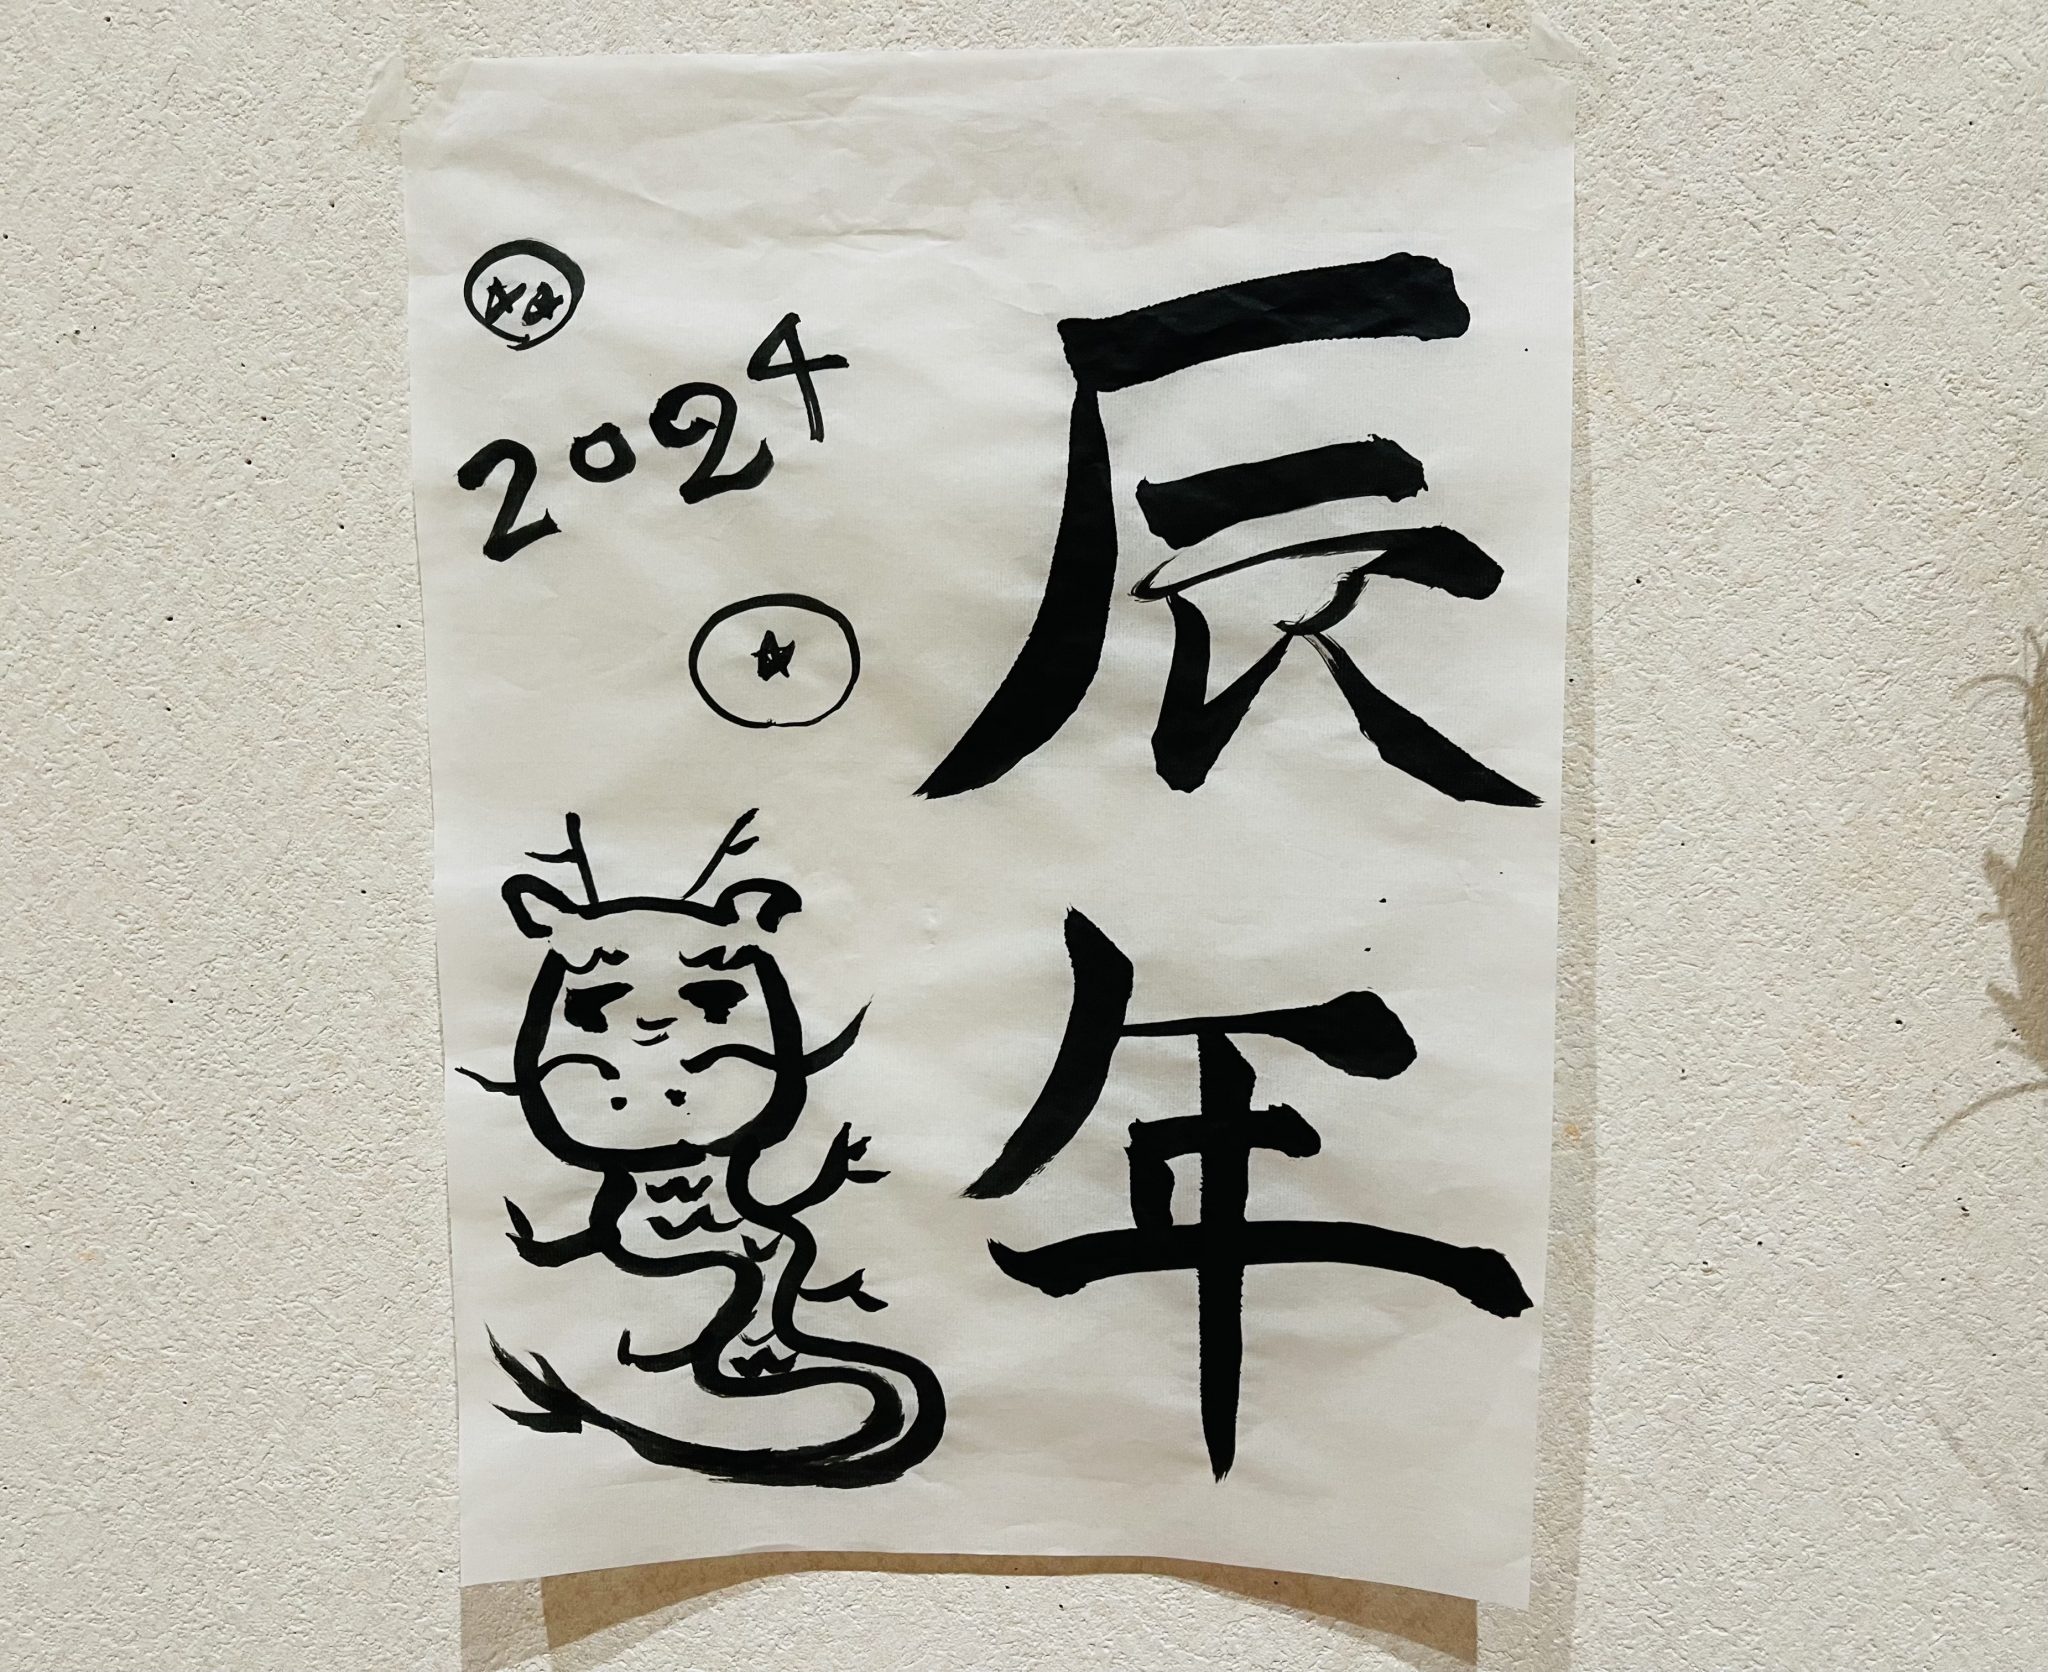 辰年
2024